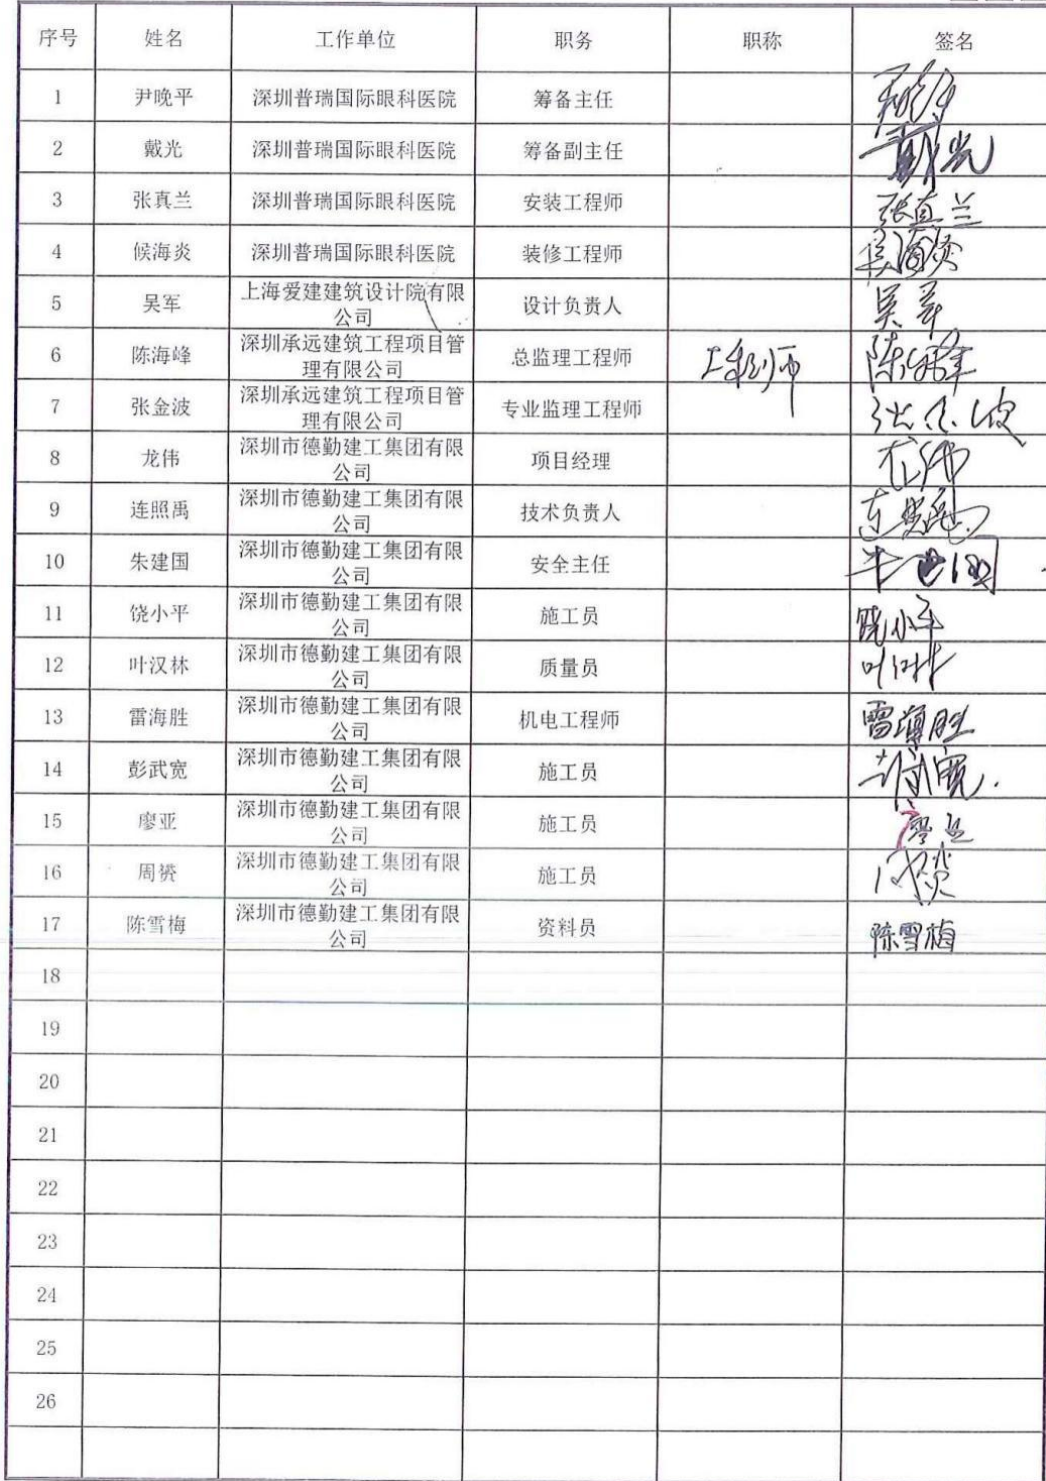 序号 姓名 工作单位 职务 职称 签名
1 尹晚平 深圳普瑞国际眼科医院 筹备主任
2 戴光 深圳普瑞国际眼科医院 筹备副主任 戴光
3 张真兰 深圳普瑞国际眼科医院 安装工程师 张真兰
4 候海炎 深圳普瑞国际眼科医院 装修工程师
5 吴军 上海爱建建筑设计院有限 设计负责人 吴军
公司
6 陈海峰 深圳承远建筑工程项目管 总监理工程师 工程师 陈海峰
理有限公司
7 张金波 深圳承远建筑工程项目管 专业监理工程师 张金波
理有限公司
8 龙伟 深圳市德勤建工集团有限 项目经理 龙伟
公司
9 连照禹 深圳市德勤建工集团有限 技术负责人 连照禹
公司
10 朱建国 深圳市德勤建工集团有限 安全主任
公司
11 饶小平 深圳市德勤建工集团有限 施工员 饶小平
公司
12 叶汉林 深圳市德勤建工集团有限 质量员 叶汉林
公司
13 雷海胜 深圳市德勤建工集团有限 机电工程师 雷海胜
公司
14 彭武宽 深圳市德勤建工集团有限 施工员
公司
15 廖亚 深圳市德勤建工集团有限 施工员 廖亚
公司
16 周赟 深圳市德勤建工集团有限 施工员
公司
17 陈雪梅 深圳市德勤建工集团有限 资料员 陈雪梅
公司
18
19
20
21
22
23
24
25
26